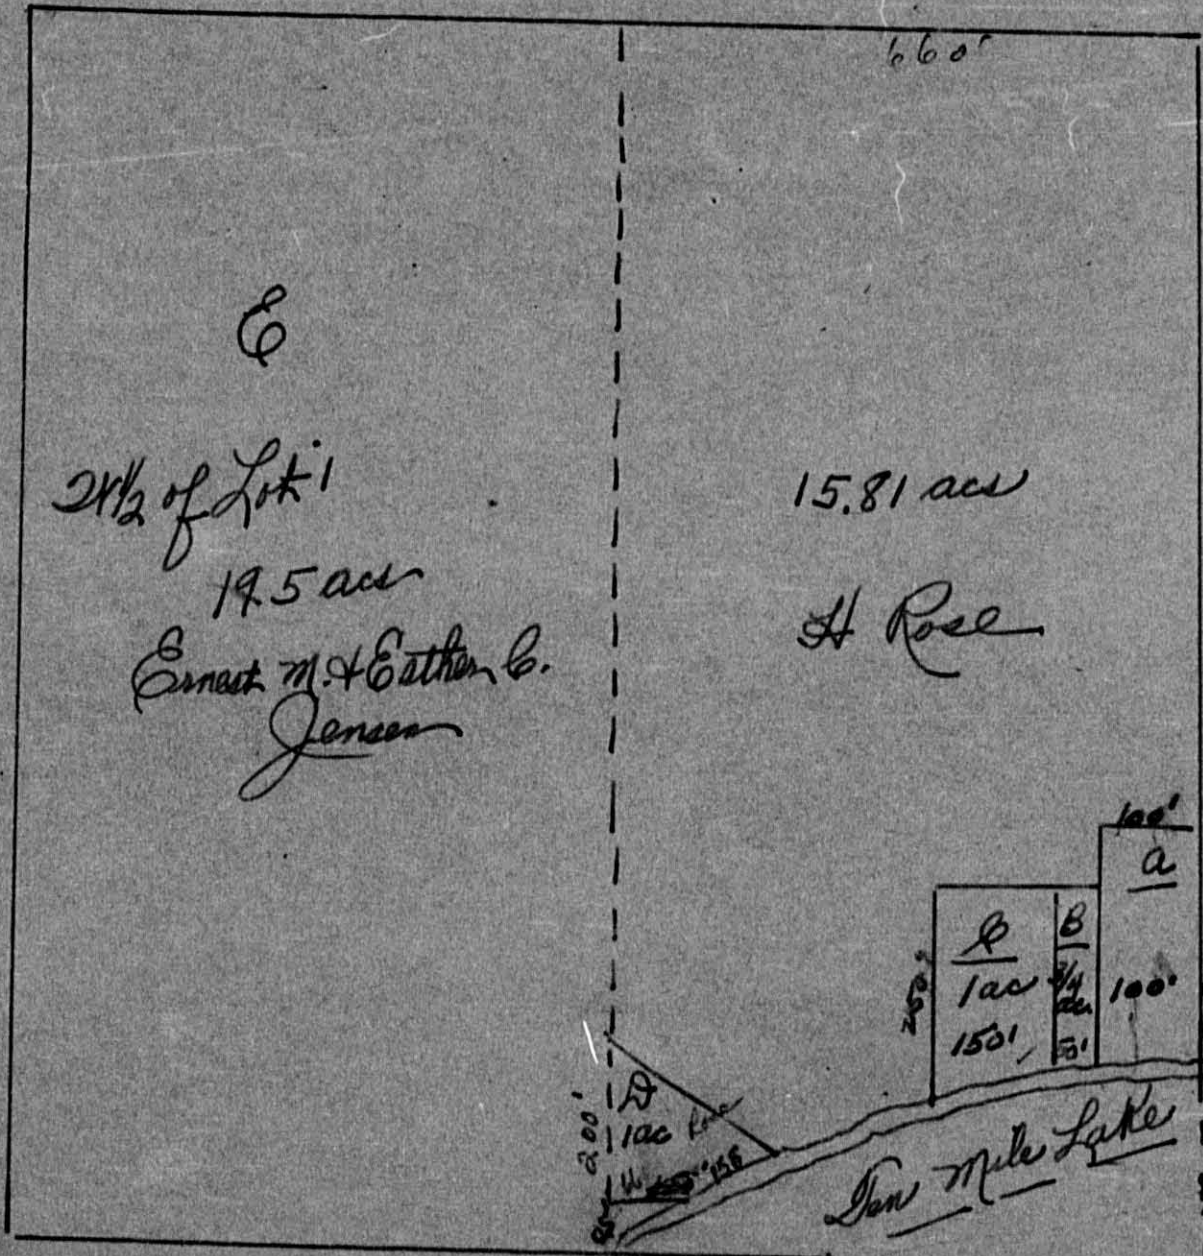 660'
E
W1/2 of Lot 1
19.5 acs
Ernest M. & Esther C.
Jensen
15.81 acs
H Rose
100'
a
100'
B
3/4
50'
C
1 ac
150'
250'
D
1 ac Rose
200'
Ten Mile Lake